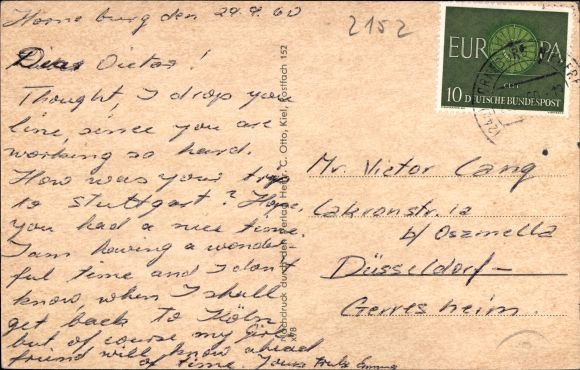 Horneburg den 29.9.60
2152
Dear Victor!
Thought, I drop you
line, since you are
working so hard.
How was your trip
to Stuttgart? Hope,
you had a nice time.
I am having a wonder
ful time and I don't
know when I shall
get back to Köln
but of course my girl
friend will know ahead
of time. Yours
Nachdruck durch den Verlag Hein. C. Otto, Kiel, Postfach 152
EUROPA
CEPT
10 DEUTSCHE BUNDESPOST
Mr. Victor Cang
Lakronstr. 1a
b/ Oszmella
Düsseldorf-
Gerresheim.